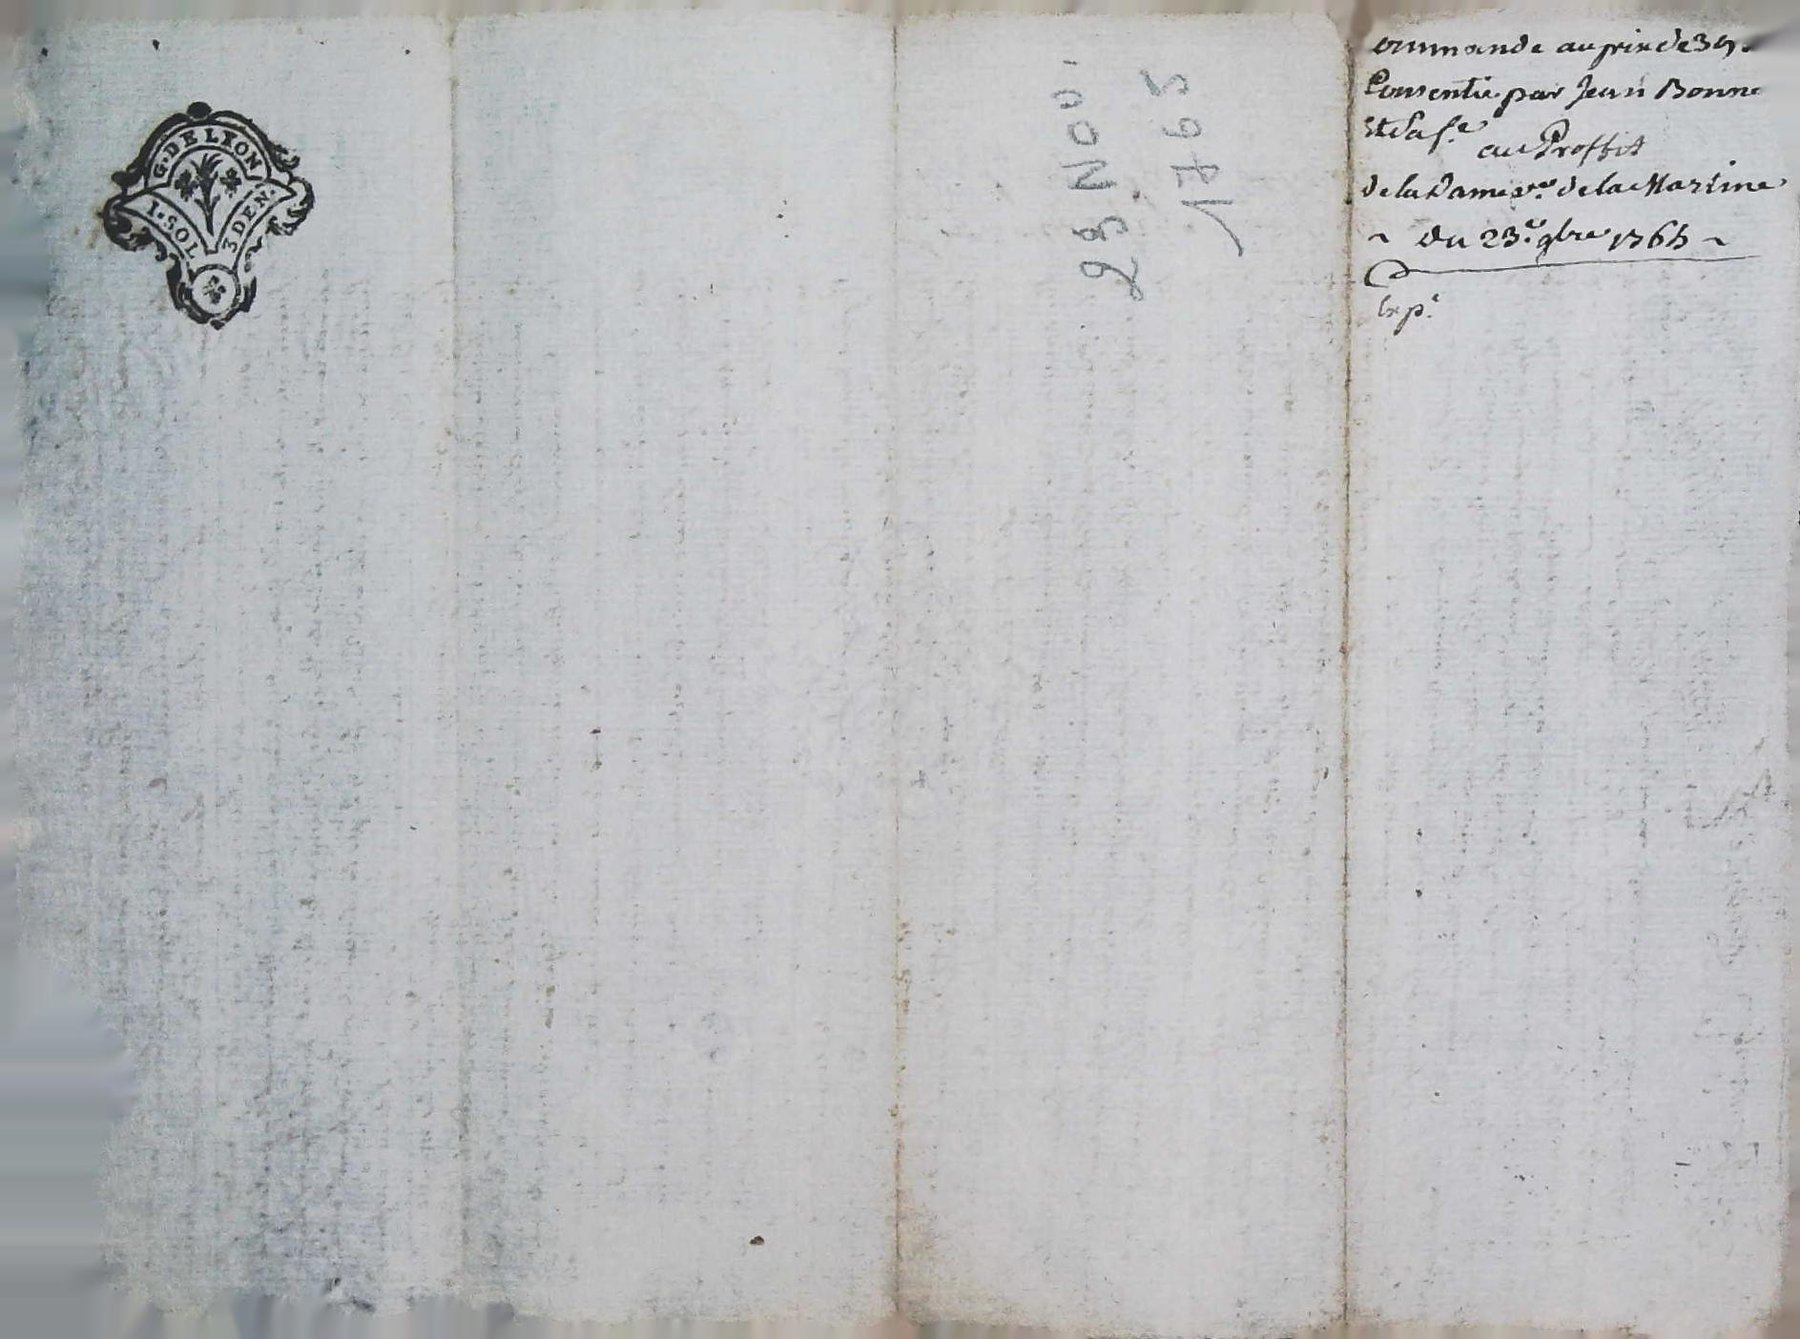 G. DE LYON
1. SOL 3 DEN.
23 NOV.
1765
au prix de 39
Consentie par Jean Bonne
Et Sa fe
au Proffit
de la Dame ve. de la Martine
~ du 23.e 9bre 1765 ~
Exp.e